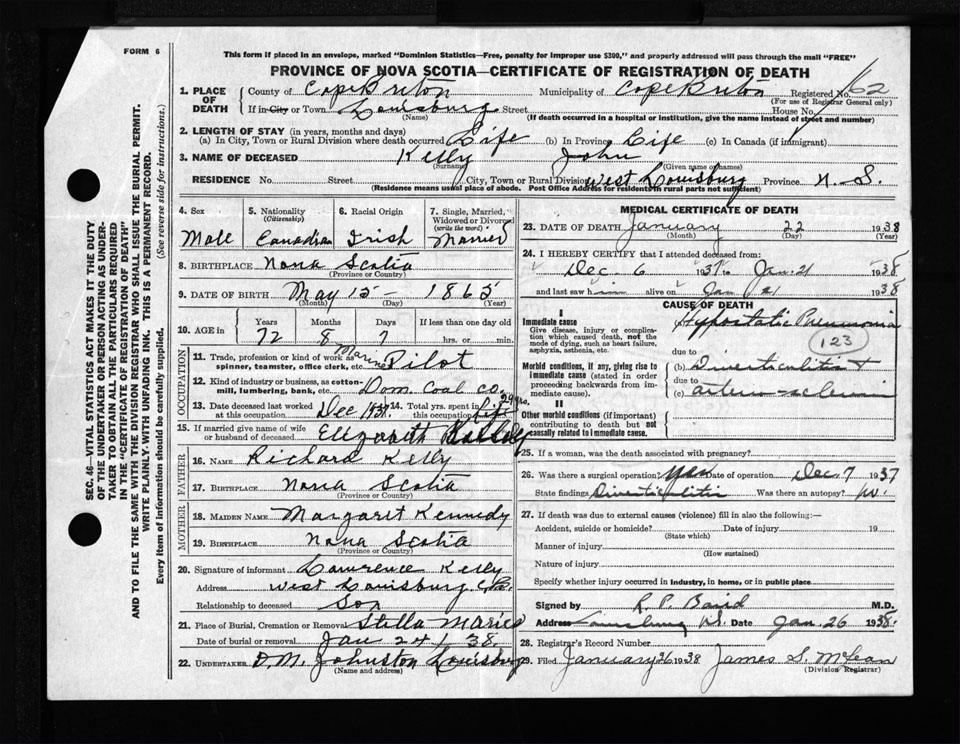 FORM 6
This form if placed in an envelope, marked "Dominion Statistics—Free, penalty for improper use $300," and properly addressed will pass through the mail "FREE"
PROVINCE OF NOVA SCOTIA—CERTIFICATE OF REGISTRATION OF DEATH
1. PLACE OF DEATH
County of Cape Breton Municipality of Cape Breton Registered No. 62
(For use of Registrar General only)
If in City or Town Louisburg Street House No.
(Name) (If death occurred in a hospital or institution, give the name instead of street and number)
2. LENGTH OF STAY (in years, months and days)
(a) In City, Town or Rural Division where death occurred Life (b) In Province Life (c) In Canada (if immigrant)
3. NAME OF DECEASED Kelly John
(Surname) (Given name or names)
RESIDENCE No. Street City, Town or Rural Division West Louisburg Province N. S.
(Residence means usual place of abode. Post Office Address for residents in rural parts not sufficient)
4. Sex Male
5. Nationality (Citizenship) Canadian
6. Racial Origin Irish
7. Single, Married, Widowed or Divorced (write the word) Married
8. BIRTHPLACE Nova Scotia
(Province or Country)
9. DATE OF BIRTH May 15 1865
(Month) (Day) (Year)
10. AGE in Years Months Days If less than one day old
72 8 7 hrs. or min.
OCCUPATION
11. Trade, profession or kind of work as spinner, teamster, office clerk, etc. Marine Pilot
12. Kind of industry or business, as cotton-mill, lumbering, bank, etc. Dom. Coal Co.
13. Date deceased last worked at this occupation Dec 1937 14. Total yrs. spent in this occupation
15. If married give name of wife or husband of deceased Elizabeth
FATHER
16. NAME Richard Kelly
17. BIRTHPLACE Nova Scotia
(Province or Country)
MOTHER
18. MAIDEN NAME Margaret Kennedy
19. BIRTHPLACE Nova Scotia
(Province or Country)
20. Signature of informant Lawrence Kelly
Address West Louisburg C.B.
Relationship to deceased Son
21. Place of Burial, Cremation or Removal Stella Maries
Date of burial or removal Jan 24 / 38.
22. UNDERTAKER D. M. Johnston Louisburg
(Name and address)
MEDICAL CERTIFICATE OF DEATH
23. DATE OF DEATH January 22 1938
(Month) (Day) (Year)
24. I HEREBY CERTIFY that I attended deceased from:
Dec 6 1937 to Jan. 21 1938
and last saw him alive on Jan 21 1938
CAUSE OF DEATH
I
Immediate cause Hypostatic Pneumonia
Give disease, injury or complication which caused death, not the mode of dying, such as heart failure, asphyxia, asthenia, etc.
123
due to
Morbid conditions, if any, giving rise to immediate cause (stated in order proceeding backwards from immediate cause) (b) Diverticulitis +
due to
(c) arterio-sclerosis
II
Other morbid conditions (if important) contributing to death but not causally related to immediate cause.
25. If a woman, was the death associated with pregnancy?
26. Was there a surgical operation? Yes Date of operation Dec. 7 1937
State findings Diverticulitis Was there an autopsy? no.
27. If death was due to external causes (violence) fill in also the following:—
Accident, suicide or homicide? Date of injury 19
(State which)
Manner of injury
(How sustained)
Nature of injury
Specify whether injury occurred in industry, in home, or in public place
Signed by R. P. Baird M.D.
Address Louisburg N.S. Date Jan. 26 1938.
28. Registrar's Record Number
29. Filed January 26 1938 James S. McLean
(Division Registrar)
SEC. 46—VITAL STATISTICS ACT MAKES IT THE DUTY
OF THE UNDERTAKER OR PERSON ACTING AS UNDER-
TAKER TO OBTAIN ALL THE PARTICULARS REQUIRED
IN THE "CERTIFICATE OF REGISTRATION OF DEATH"
AND TO FILE THE SAME WITH THE DIVISION REGISTRAR WHO SHALL ISSUE THE BURIAL PERMIT.
WRITE PLAINLY. WITH UNFADING INK. THIS IS A PERMANENT RECORD.
Every item of information should be carefully supplied. (See reverse side for instructions.)